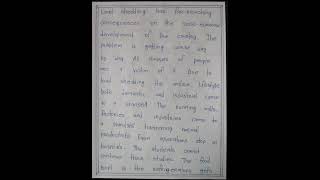 Load shedding has far-reaching
consequences on the socio-economic
development of the country. The
problem is getting worse day
by day. All classes of people
are a victim of it. Due to
load shedding the entire lifestyle
both domestic and industrial come
to a standstill. The running mills,
factories and industries come to
a standstill hampering normal
production. Even operations stop in
hospitals. The students cannot
continue their studies. The food
kept in the refrigerators gets